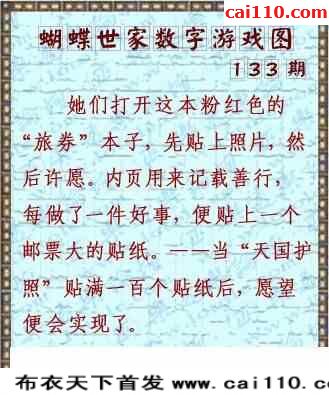 cai110.com
蝴蝶世家数字游戏图
133期
她们打开这本粉红色的
“旅券”本子，先贴上照片，然
后许愿。内页用来记载善行，
每做了一件好事，便贴上一个
邮票大的贴纸。——当“天国护
照”贴满一百个贴纸后，愿望
便会实现了。
布衣天下首发 www.cai110.com